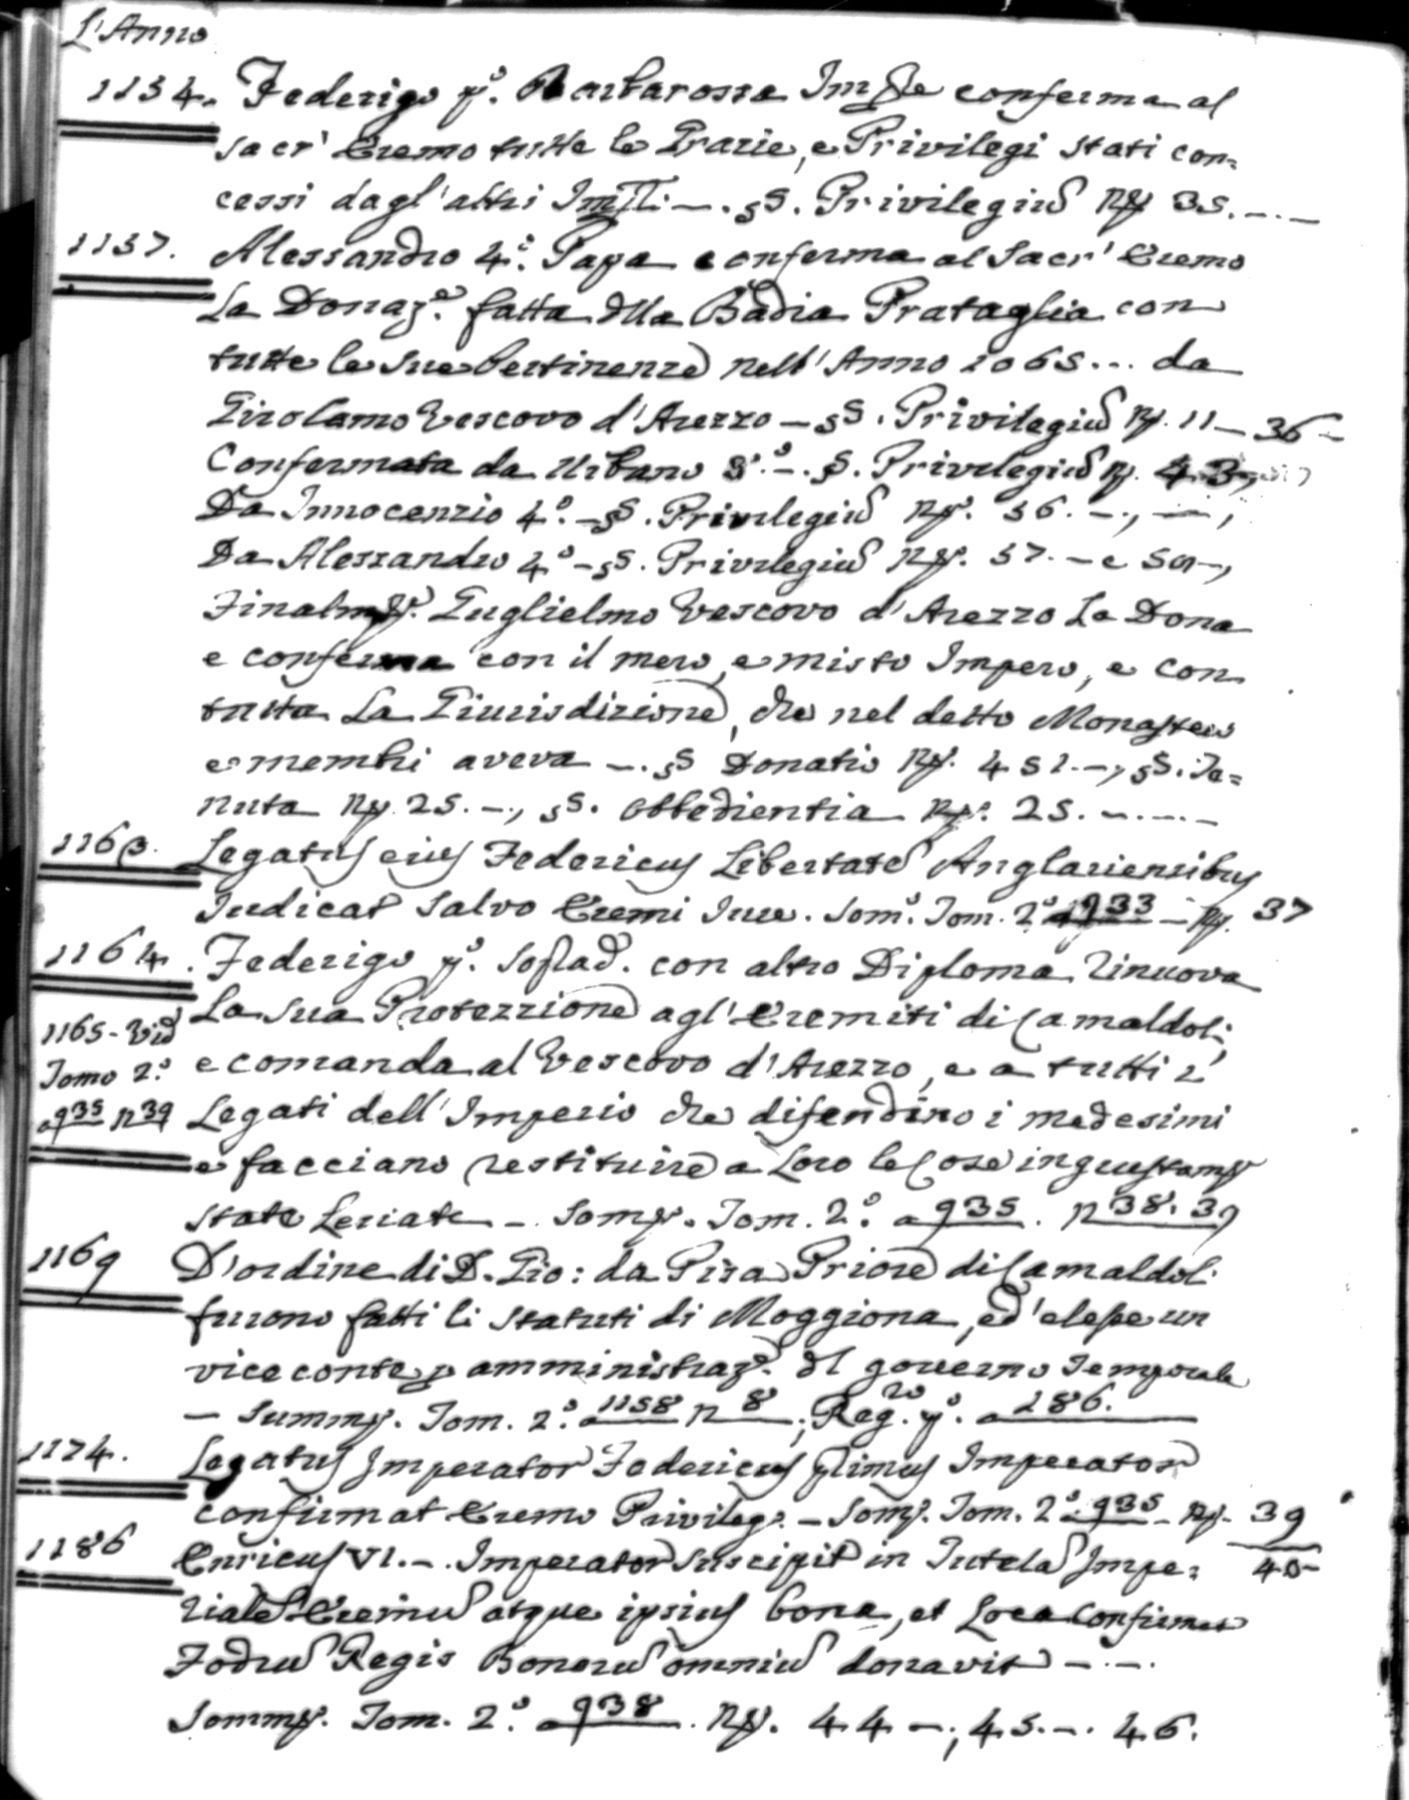 L'Anno
1154. Federigo p.º Barbarossa Imp.re conferma al
sacr' Eremo tutte le Grazie, e Privilegi stati con=
cessi dagl'altri Imp.ri —. §§. Privilegiũ Nº 35. — . —
1157. Alessandro 4.º Papa conferma al Sacr' Eremo
La Donaz.e fatta dlla Badia Prataglia con
tutte le sue Pertinenze nell'Anno 1065... da
Girolamo Vescovo d'Arezzo — §§. Privilegiũ Nº. 11 — 36 —
Confermata da Urbano 3.º —. §. Privilegiũ Nº. 43,
Da Innocenzio 4.º — §§. Privilegiũ Nº. 56. — ., — ,
Da Alessandro 4.º — §§. Privilegiũ Nº. 57. — e 59 —,
Finalmᵗᵉ. Guglielmo Vescovo d'Arezzo La Dona
e conferma con il mero, e misto Impero, e con
tutta La Giurisdizione, che nel detto Monastero
e membri aveva —. §§ Donatio Nº. 451. —, §§. Te=
nuta Nº 25. — ., §§. obbedientia Nº. 25. — . — . —
1163. Legatus eius Federicus Libertatẽ Anglariensibus
Iudicat salvo Eremi Iure. Som.º Tom. 2.º a 933 — Nº. 37
1164. Federigo p.º soprad.º con altro Diploma rinuova
La sua Protezzione agl'Eremiti di Camaldoli,
1165 - Vid
Tomo 2.º
a 935 n 39
e comanda al Vescovo d'Arezzo, e a tutti i
Legati dell'Imperio che difendino i medesimi
e facciano restituire a Loro le Cose ingiustamᵗᵉ
state Levate — Somᵐº. Tom. 2.º a 935. n 38. 39
1169 D'ordine di D. Gio: da Pisa Priore di Camaldoli
furono fatti li statuti di Moggiona, ed'elesse un
vice conte p amministraz.e dl governo Temporale
— Summº. Tom. 2.º a 1158 n 8; Reg.ro p.º a 286.
1174. Legatus Imperator Federicus primus Imperator
confirmat Eremo Privileg.ª — Somº. Tom. 2.º 935 — Nº. 39
1186 Enricus VI. — . Imperator suscipit in Tutelã Impe= 40
rialẽ Eremũ atque ipsius bona, et Loca confirmat
Fodrũ Regis Bonorũ omniũ donavit — . — .
Sommº. Tom. 2.º a 938. Nº. 44 —, 45. — . 46.